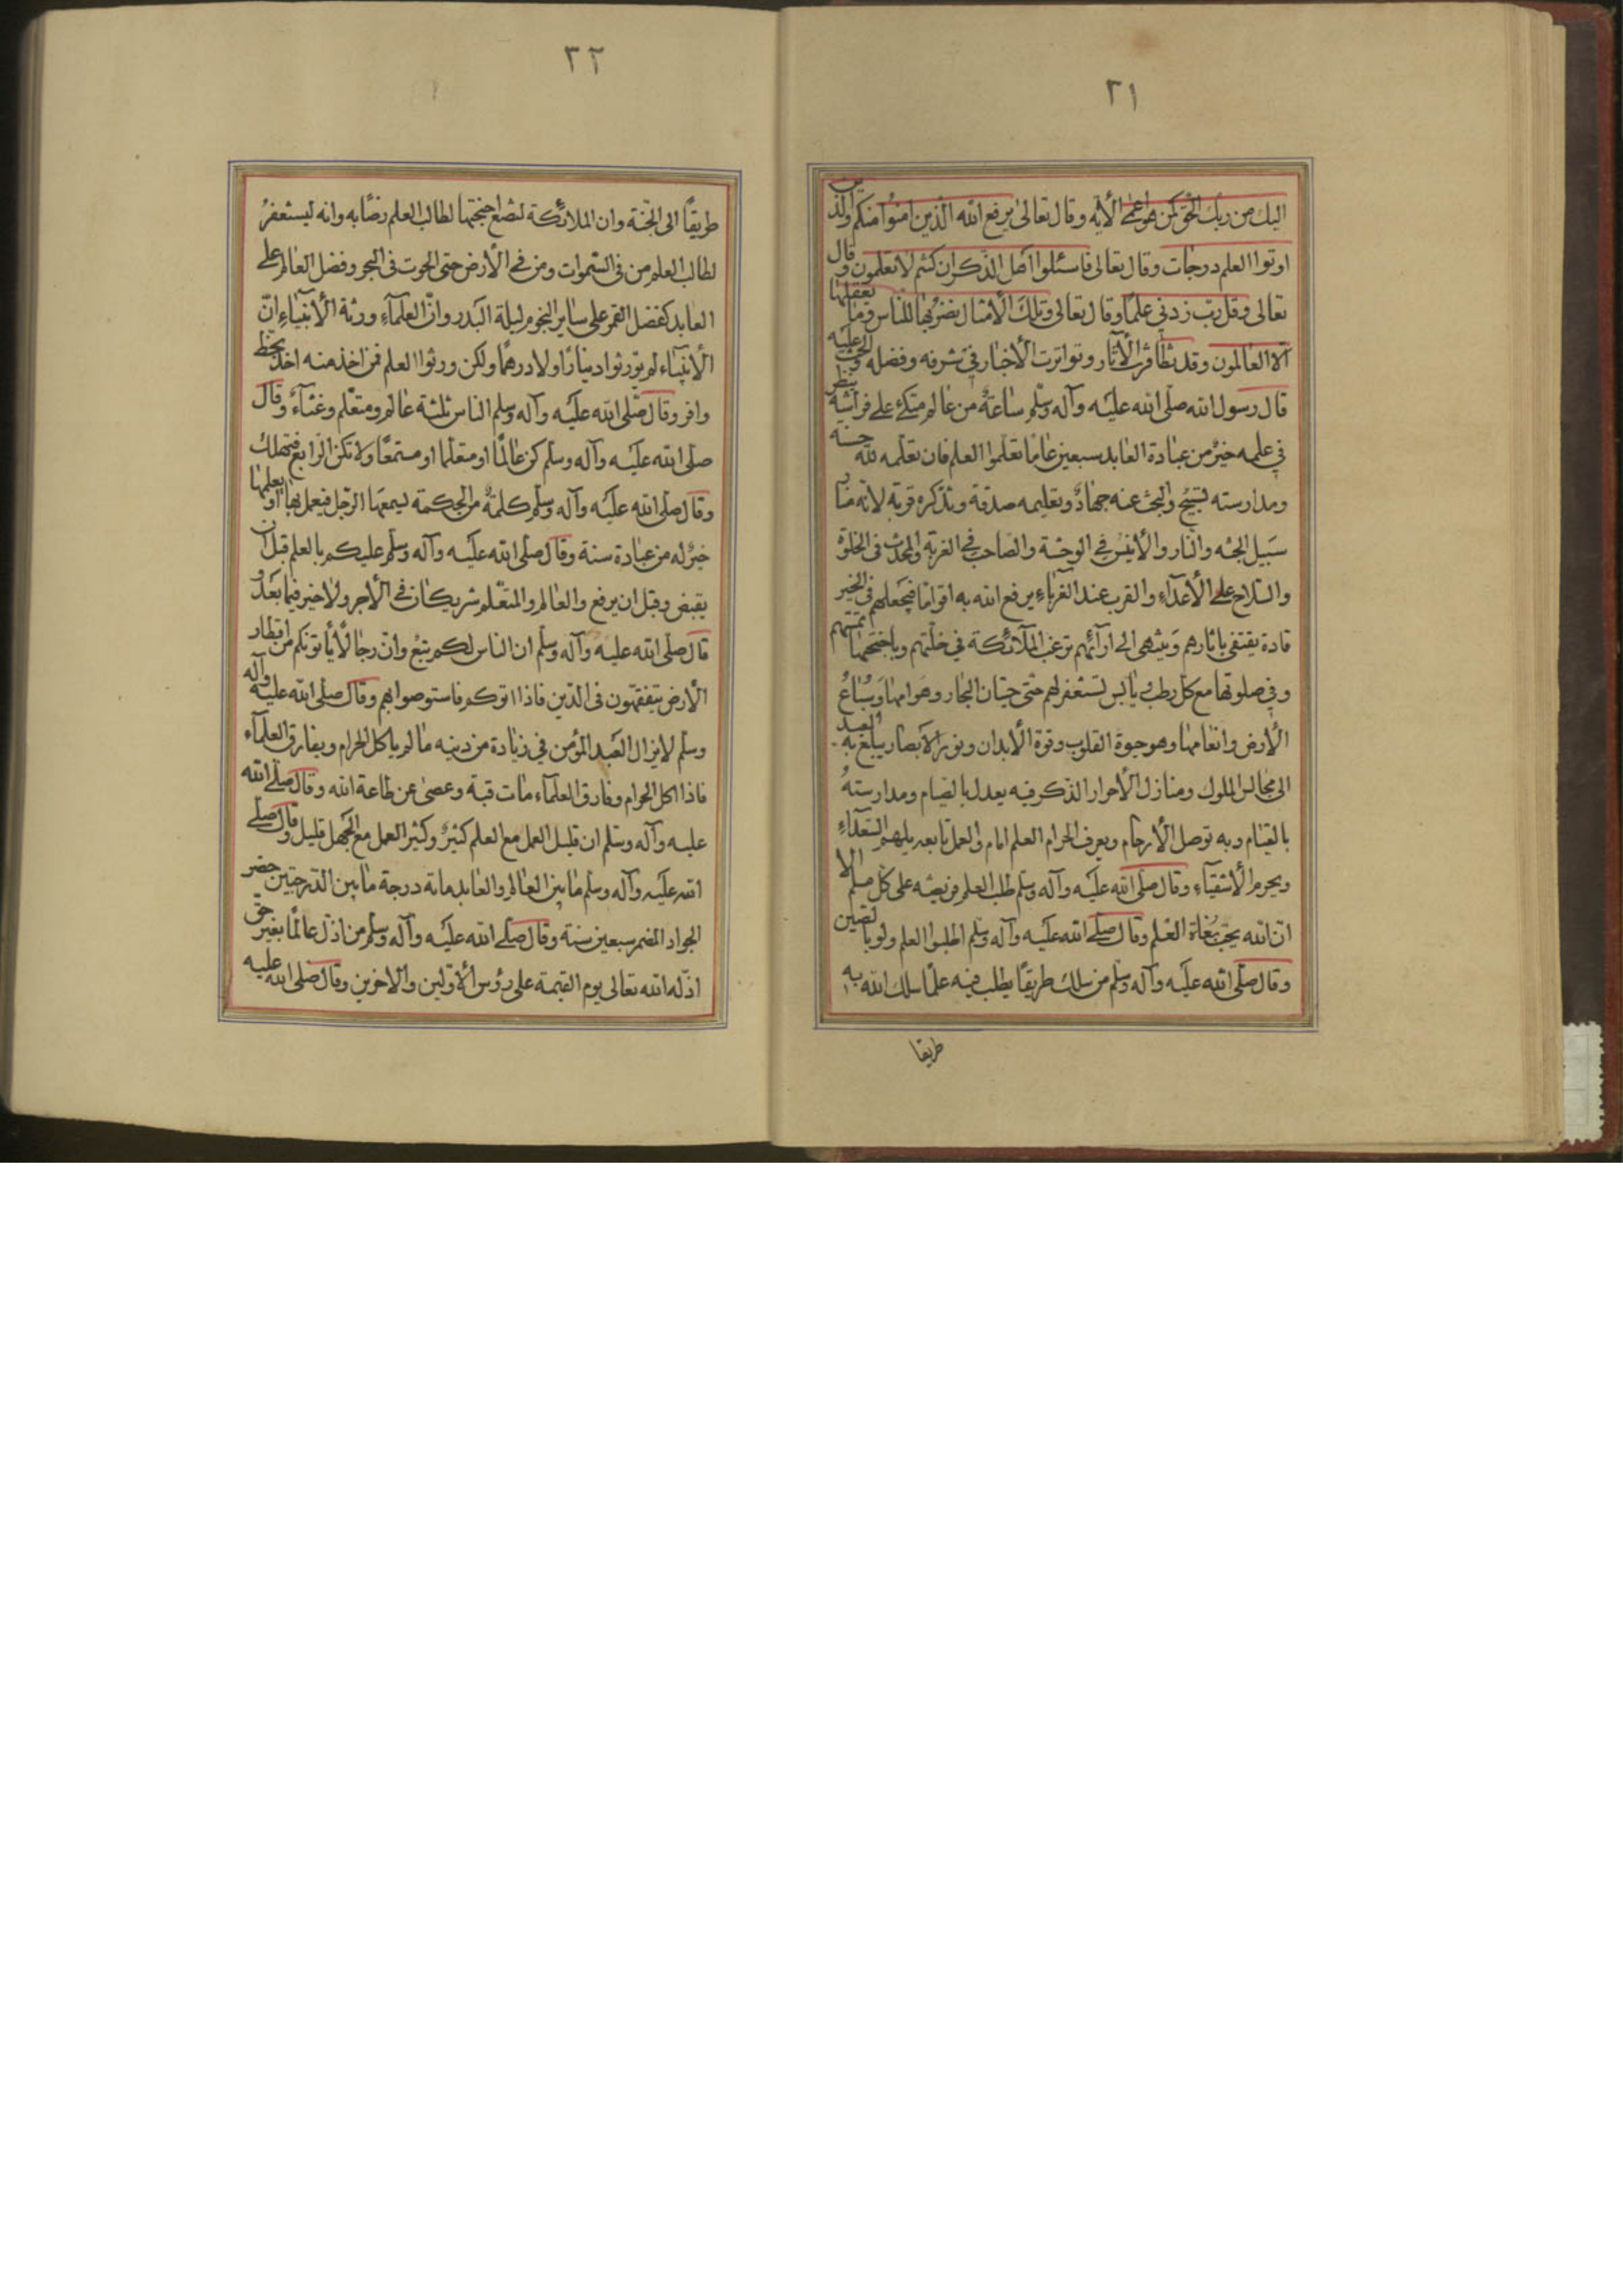 ٢١
اليك من ربك الحق كمن هو اعمى الآية وقال تعالى يرفع الله الذين امنوا منكم والذين
اوتوا العلم درجات وقال تعالى فاسئلوا اهل الذكر ان كنتم لا تعلمون وقال
تعالى وقل رب زدني علما وقال تعالى وتلك الأمثال نضربها للناس وما يعقلها
الا العالمون وقد تظافرت الآثار وتواترت الأخبار في شرفه وفضله والحث عليه
قال رسول الله صلى الله عليه وآله وسلم ساعة من عالم متكئ على فراشه ينظر
في علمه خير من عبادة العابد سبعين عاما تعلموا العلم فان تعلمه لله حسنة
ومدارسته تسبيح والبحث عنه جهاد وتعليمه صدقة وتذكره قربة لانه منار
سبيل الجنه والنار والأنيس في الوحشة والصاحب في الغربة والمحدث في الخلوة
والسلاح على الأعداء والقرب عند الغرباء يرفع الله به اقواما فيجعلهم في الخير
قادة يقتفى باثارهم وينتهى الى ارائهم ترغب الملائكة في خلتهم وباجنحتها تمسهم
وفي صلوتها مع كل رطب يابس تستغفر لهم حتى حيتان البحار وهوامها وسباع
الأرض وانعامها وهو حيوة القلوب وقوة الأبدان ونور الأبصار يبلغ به العبد
الى مجالس الملوك ومنازل الأحرار الذكر فيه يعدل بالصيام ومدارسته
بالقيام وبه توصل الأرحام ويعرف الحرام العلم امام والعمل تابعه يلهمه السعداء
ويحرمه الأشقياء وقال صلى الله عليه وآله وسلم طلب العلم فريضه على كل مسلم الا
ان الله يحب بغاة العلم وقال صلى الله عليه وآله وسلم اطلبوا العلم ولو بالصين
وقال صلى الله عليه وآله وسلم من سلك طريقا يطلب فيه علما سلك الله به
طريقا
٢٢
طريقا الى الجنة وان الملائكة لتضع اجنحتها لطالب العلم رضا به وانه ليستغفر
لطالب العلم من في السموات ومن في الأرض حتى الحوت في البحر وفضل العالم على
العابد كفضل القمر على ساير النجوم ليلة البدر وان العلماء ورثة الأنبياء ان
الأنبياء لم يورثوا دينارا ولا درهما ولكن ورثوا العلم فمن اخذ منه اخذ بحظ
وافر وقال صلى الله عليه وآله وسلم الناس ثلثة عالم ومتعلم وغثاء وقال
صلى الله عليه وآله وسلم كن عالما او متعلما او مستمعا ولا تكن الرابع فتهلك
وقال صلى الله عليه وآله وسلم كلمة من الحكمة يسمعها الرجل فيعمل بها او يعلمها
خير له من عبادة سنة وقال صلى الله عليه وآله وسلم عليكم بالعلم قبل ان
يقبض وقبل ان يرفع والعالم والمتعلم شريكان في الأجر ولا خير فيما بعد و
قال صلى الله عليه وآله وسلم ان الناس لكم تبع وان رجالا يأتونكم من اقطار
الأرض يتفقهون في الدين فاذا اتوكم فاستوصوا بهم وقال صلى الله عليه وآله
وسلم لا يزال العبد المؤمن في زيادة من دينه ما لم ياكل الحرام ويفارق العلماء
فاذا اكل الحرام وفارق العلماء مات قبة وعصى عن طاعة الله وقال صلى الله
عليه وآله وسلم ان قليل العمل مع العلم كثير وكثير العمل مع الجهل قليل وقال صلى
الله عليه وآله وسلم ما بين العالم والعابد ماية درجة ما بين الدرجتين حضر
الجواد المضمر سبعين سنة وقال صلى الله عليه وآله وسلم من اذل عالما بغير حق
اذله الله تعالى يوم القيمة على رؤس الأولين والاخرين وقال صلى الله عليه